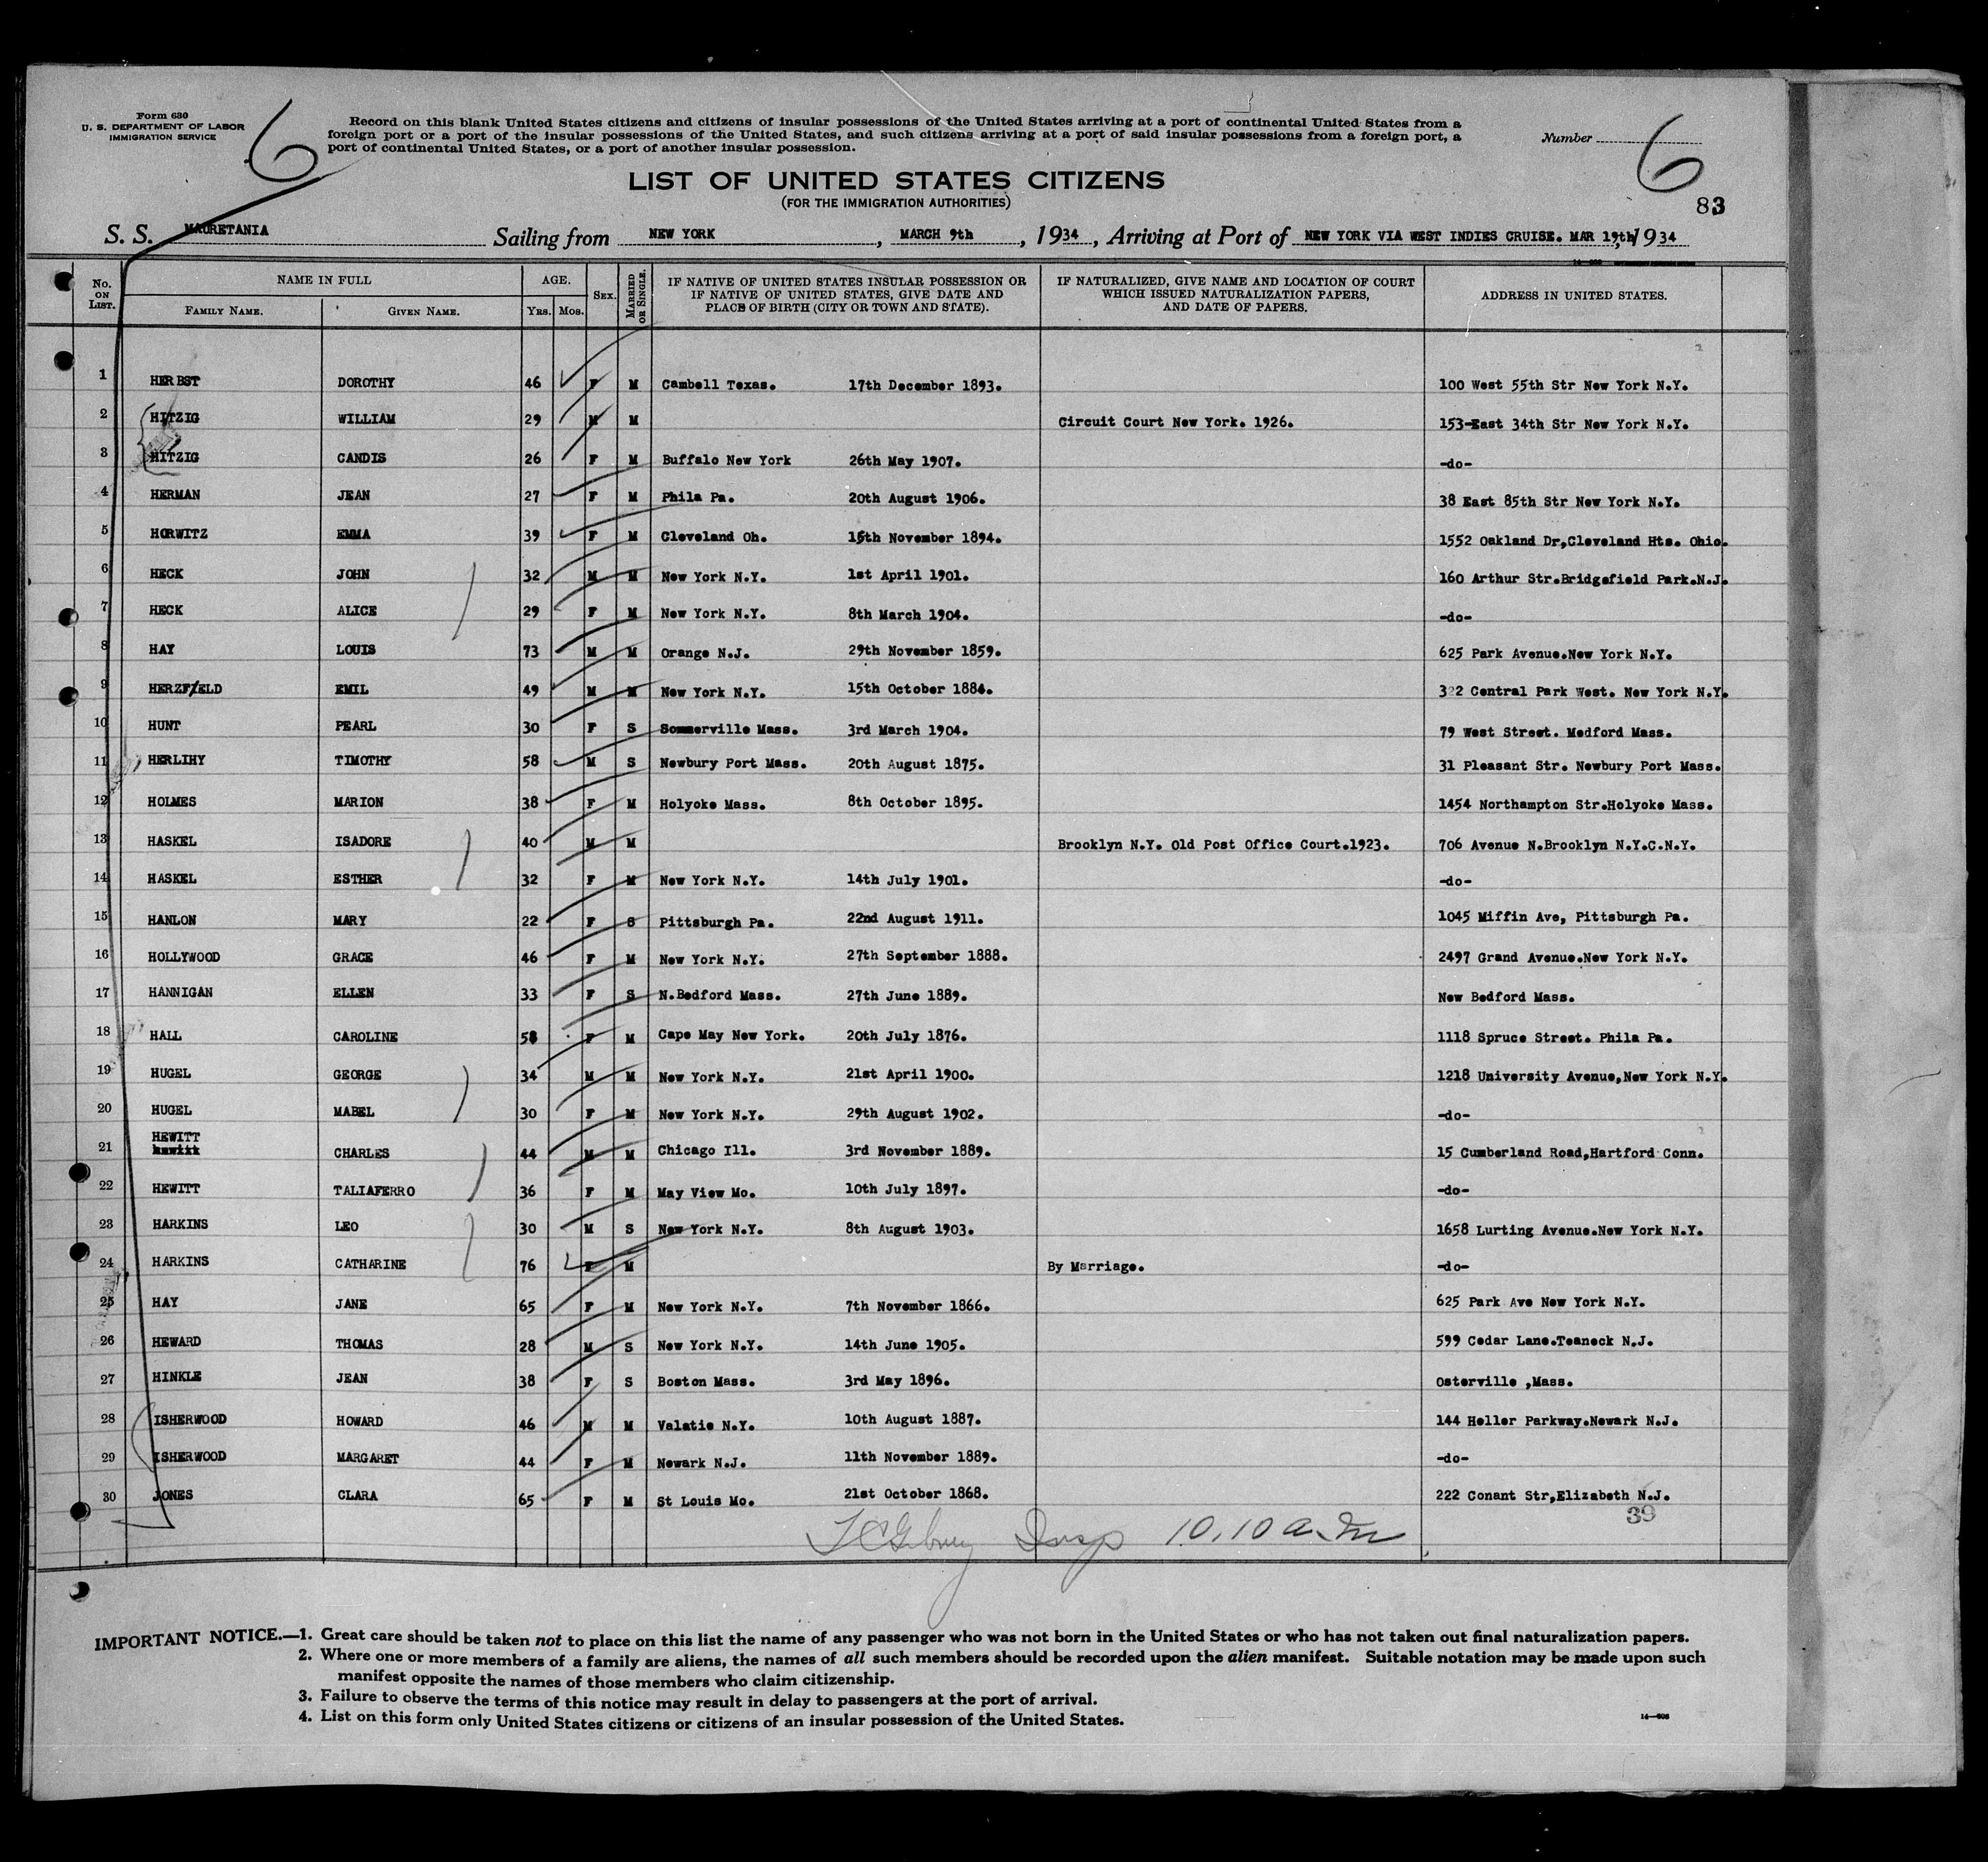 Form 630
U. S. DEPARTMENT OF LABOR
IMMIGRATION SERVICE
6
Record on this blank United States citizens and citizens of insular possessions of the United States arriving at a port of continental United States from a
foreign port or a port of the insular possessions of the United States, and such citizens arriving at a port of said insular possessions from a foreign port, a
port of continental United States, or a port of another insular possession.
Number
6
83
LIST OF UNITED STATES CITIZENS
(FOR THE IMMIGRATION AUTHORITIES)
S. S. MAURETANIA Sailing from NEW YORK, MARCH 9th, 1934, Arriving at Port of NEW YORK VIA WEST INDIES CRUISE. MAR 19th, 1934
No. ON LIST. NAME IN FULL AGE. SEX. MARRIED OR SINGLE. IF NATIVE OF UNITED STATES INSULAR POSSESSION OR IF NATIVE OF UNITED STATES, GIVE DATE AND PLACE OF BIRTH (CITY OR TOWN AND STATE). IF NATURALIZED, GIVE NAME AND LOCATION OF COURT WHICH ISSUED NATURALIZATION PAPERS, AND DATE OF PAPERS. ADDRESS IN UNITED STATES.
FAMILY NAME. GIVEN NAME. YRS. MOS.
1 HERBST DOROTHY 46 F M Cambell Texas. 17th December 1893. 100 West 55th Str New York N.Y.
2 HITZIG WILLIAM 29 M M Circuit Court New York. 1926. 153-East 34th Str New York N.Y.
3 HITZIG CANDIS 26 F M Buffalo New York 26th May 1907. -do-
4 HERMAN JEAN 27 F M Phila Pa. 20th August 1906. 38 East 85th Str New York N.Y.
5 HORWITZ EMMA 39 F M Cleveland Oh. 15th November 1894. 1552 Oakland Dr,Cleveland Hts. Ohio.
6 HECK JOHN 32 M M New York N.Y. 1st April 1901. 160 Arthur Str.Bridgefield Park.N.J.
7 HECK ALICE 29 F M New York N.Y. 8th March 1904. -do-
8 HAY LOUIS 73 M M Orange N.J. 29th November 1859. 625 Park Avenue.New York N.Y.
9 HERZFELD EMIL 49 M M New York N.Y. 15th October 1884. 322 Central Park West. New York N.Y.
10 HUNT PEARL 30 F S Sommerville Mass. 3rd March 1904. 79 West Street. Medford Mass.
11 HERLIHY TIMOTHY 58 M S Newbury Port Mass. 20th August 1875. 31 Pleasant Str. Newbury Port Mass.
12 HOLMES MARION 38 F M Holyoke Mass. 8th October 1895. 1454 Northampton Str.Holyoke Mass.
13 HASKEL ISADORE 40 M M Brooklyn N.Y. Old Post Office Court.1923. 706 Avenue N.Brooklyn N.Y.C.N.Y.
14 HASKEL ESTHER 32 F M New York N.Y. 14th July 1901. -do-
15 HANLON MARY 22 F S Pittsburgh Pa. 22nd August 1911. 1045 Miffin Ave, Pittsburgh Pa.
16 HOLLYWOOD GRACE 46 F M New York N.Y. 27th September 1888. 2497 Grand Avenue.New York N.Y.
17 HANNIGAN ELLEN 33 F S N.Bedford Mass. 27th June 1889. New Bedford Mass.
18 HALL CAROLINE 58 F M Cape May New York. 20th July 1876. 1118 Spruce Street. Phila Pa.
19 HUGEL GEORGE 34 M M New York N.Y. 21st April 1900. 1218 University Avenue,New York N.Y.
20 HUGEL MABEL 30 F M New York N.Y. 29th August 1902. -do-
21 HEWITT CHARLES 44 M M Chicago Ill. 3rd November 1889. 15 Cumberland Road,Hartford Conn.
22 HEWITT TALIAFERRO 36 F M May View Mo. 10th July 1897. -do-
23 HARKINS LEO 30 M S New York N.Y. 8th August 1903. 1658 Lurting Avenue.New York N.Y.
24 HARKINS CATHARINE 76 F M By Marriage. -do-
25 HAY JANE 65 F M New York N.Y. 7th November 1866. 625 Park Ave New York N.Y.
26 HEWARD THOMAS 28 M S New York N.Y. 14th June 1905. 599 Cedar Lane.Teaneck N.J.
27 HINKLE JEAN 38 F S Boston Mass. 3rd May 1896. Osterville ,Mass.
28 ISHERWOOD HOWARD 46 M M Valatie N.Y. 10th August 1887. 144 Heller Parkway.Newark N.J.
29 ISHERWOOD MARGARET 44 F M Newark N.J. 11th November 1889. -do-
30 JONES CLARA 65 F M St Louis Mo. 21st October 1868. 222 Conant Str,Elizabeth N.J.
39
Insp 10.10 a.m
IMPORTANT NOTICE.—1. Great care should be taken not to place on this list the name of any passenger who was not born in the United States or who has not taken out final naturalization papers.
2. Where one or more members of a family are aliens, the names of all such members should be recorded upon the alien manifest. Suitable notation may be made upon such
manifest opposite the names of those members who claim citizenship.
3. Failure to observe the terms of this notice may result in delay to passengers at the port of arrival.
4. List on this form only United States citizens or citizens of an insular possession of the United States.